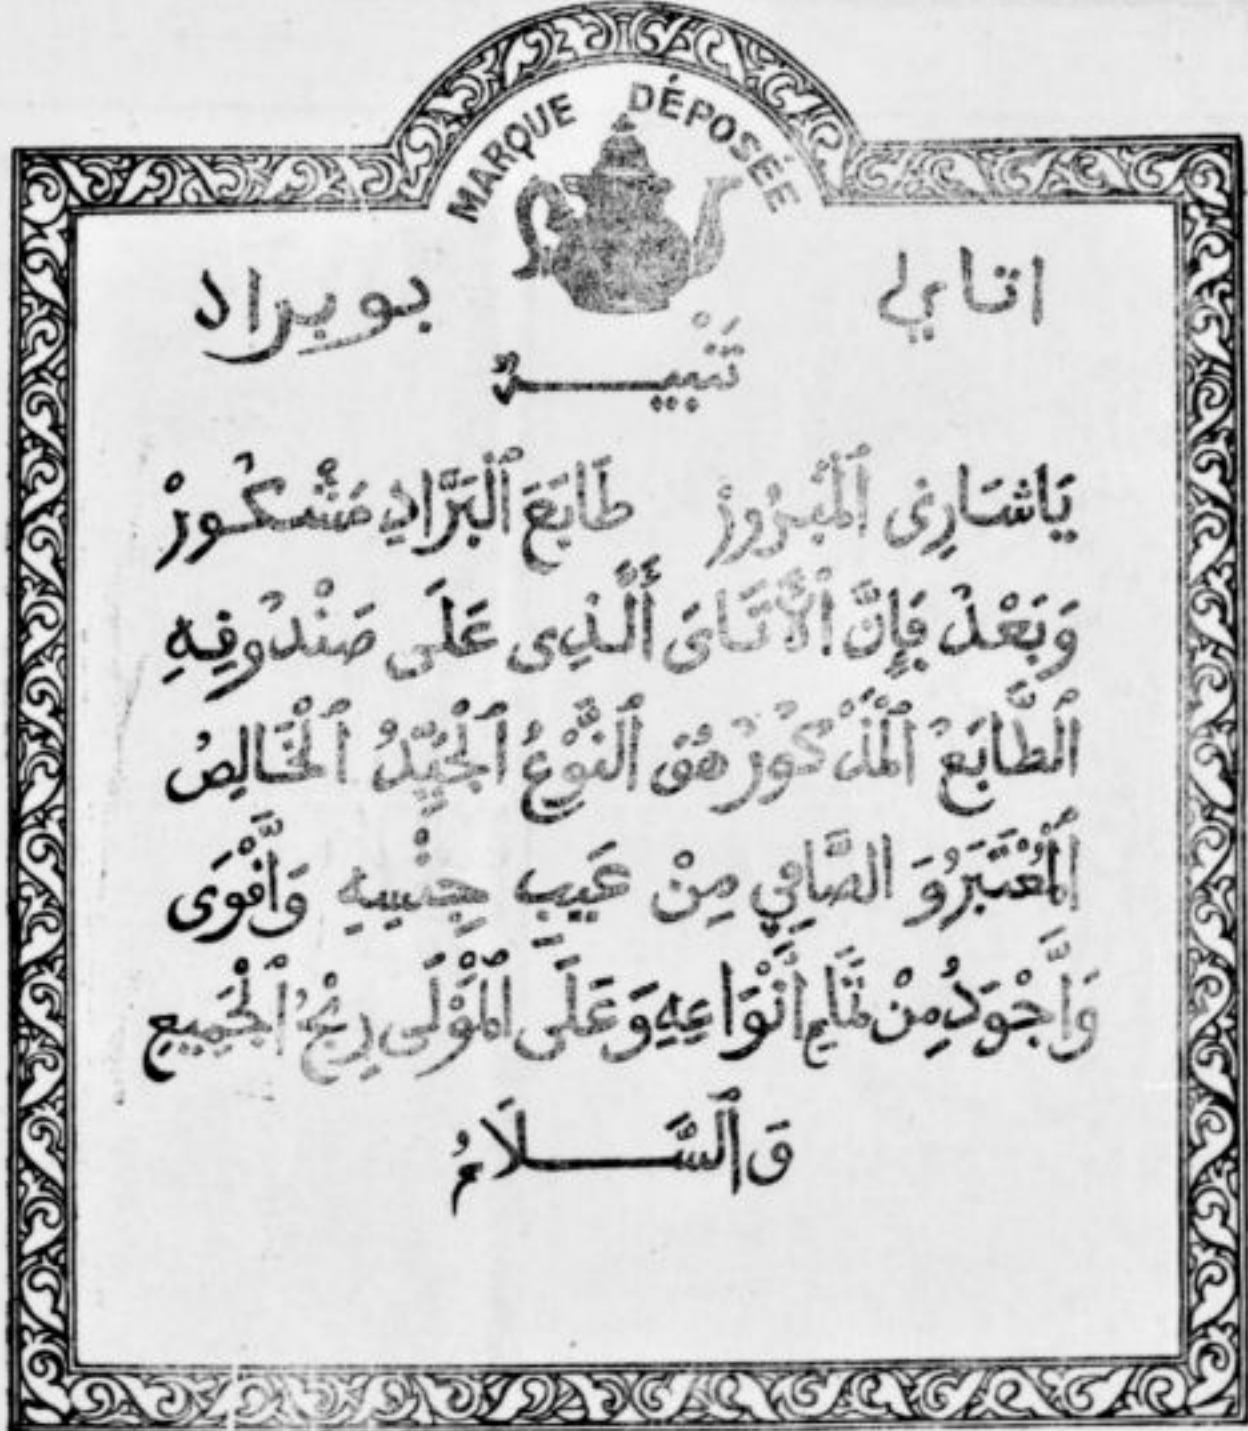 MARQUE DÉPOSÉE
اتاي بوبراد
تَنْبِيــــهٌ
يَا شَارِي ٱلْمَبْرُورْ طَابَعَ ٱلْبَرَّادِ مَشْكُورْ
وَبَعْدُ فَإِنَّ ٱلْأَتَايَ ٱلَّذِي عَلَى صَنْدُوقِهِ
ٱلطَّابَعُ ٱلْمَذْكُورُ هُوَ ٱلنَّوْعُ ٱلْجَيِّدُ ٱلْخَالِصُ
ٱلْمُعْتَبَرُ وَ الصَّافِي مِنْ عَيْبِ جِنْسِهِ وَأَقْوَى
وَأَجْوَدُ مِنْ أَنْوَاعِهِ وَعَلَى ٱلْمَوْلَى رِبْحُ ٱلْجَمِيعِ
وَ ٱلسَّــــلَامُ